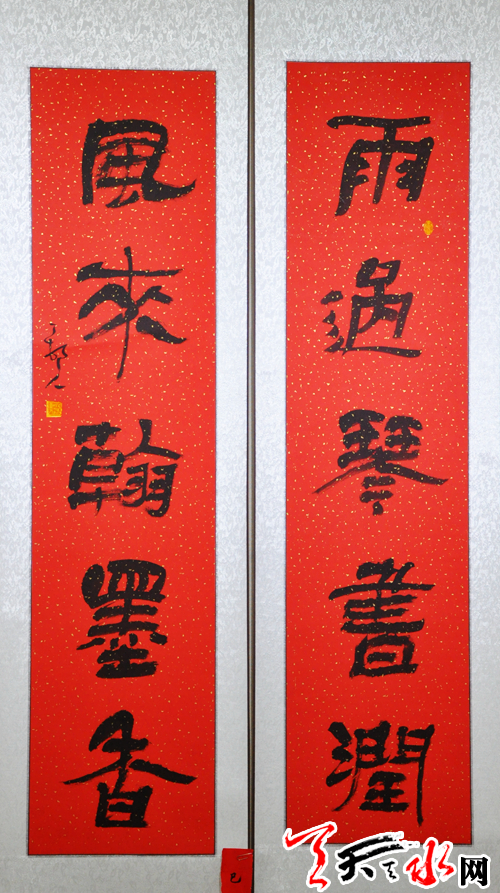 雨過琴書潤
風來翰墨香
天天水网